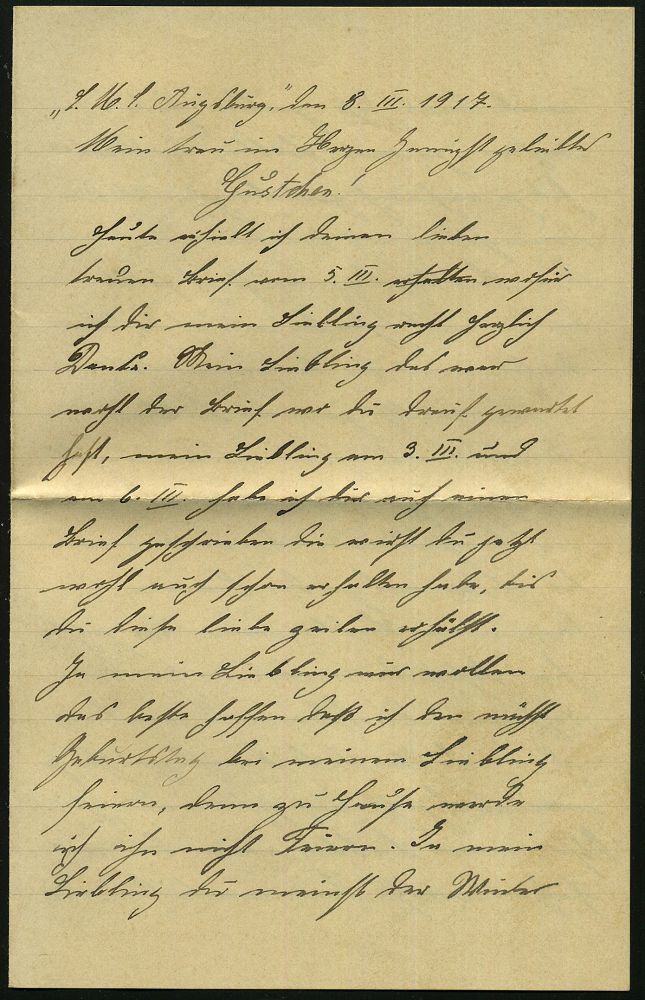 „S. M. S. Augsburg," den 8. III. 1917.
Mein treu im Herzen Innigst geliebtes
Gustchen!
Heute erhielt ich deinen lieben
treuen Brief vom 5. III. erhalten wofür
ich dir mein Liebling recht herzlich
Danke. Mein Liebling das war
wohl der Brief wo du drauf gewartet
hast, mein Liebling am 3. III. und
am 6. III. habe ich dir auch einen
Brief geschrieben die wirst du jetzt
wohl auch schon erhalten habe, bis
du diese liebe zeilen erhälst.
Ja mein Liebling wir wollen
das beste hoffen daß ich den nächst
Geburtstag bei meinem Liebling
feiern, denn zu Hause werde
ich ihn nicht feiern. Ja mein
Liebling du meinst der Winter